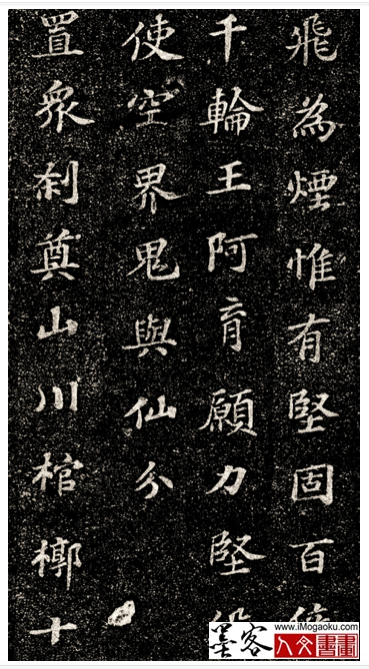 飛為煙惟有堅固百
千輪王阿育願力堅
使空界鬼與仙分
置眾刹奠山川棺槨十
www.iMogaoku.com
墨客 人文書畫